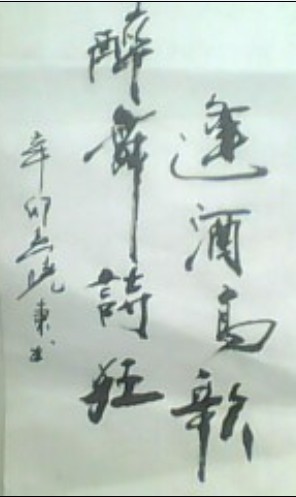 逢酒高歌
醉舞詩狂
辛卯晓東书